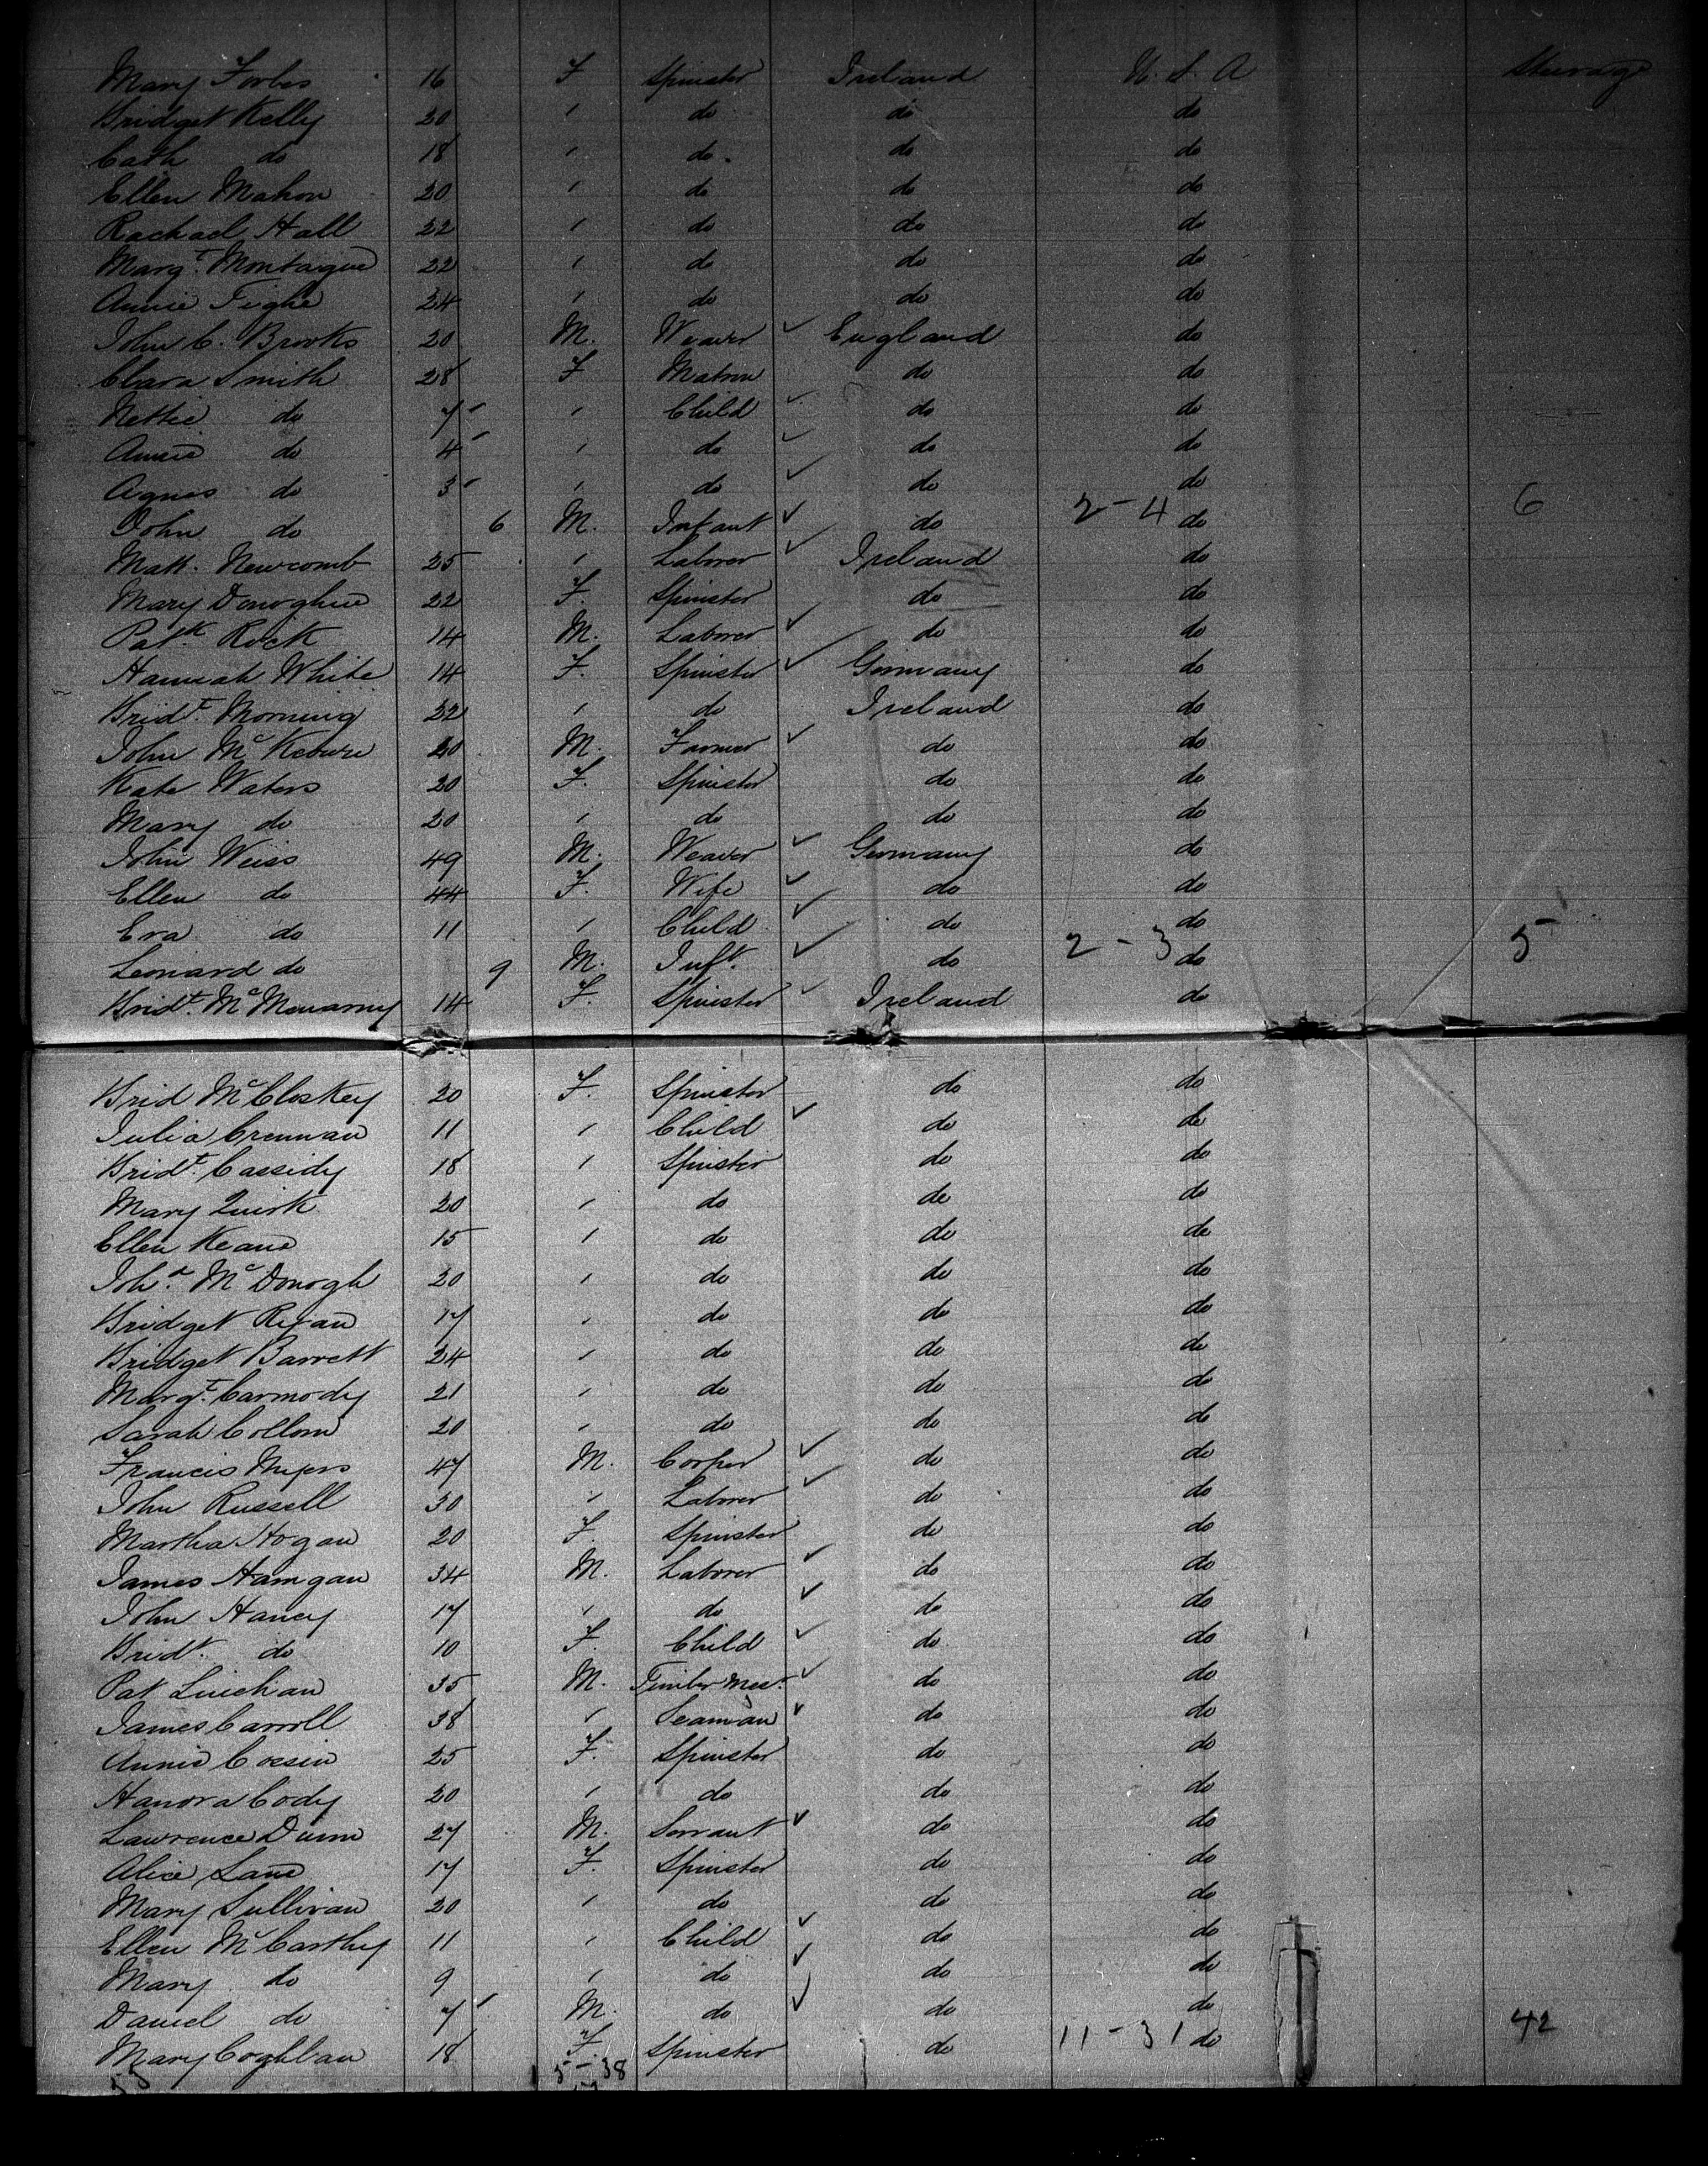 Mary Forbes 16 F Spinster Ireland U. S. A Steerage
Bridget Kelly 20 " do do do
Cath do 18 " do do do
Ellen Mahon 20 " do do do
Rachael Hall 22 " do do do
Margt. Montague 22 " do do do
Annie Tighe 24 " do do do
John C. Brooks 20 M. Weaver ✓ England do
Clara Smith 28 F Matron do do
Nettie do 7 " Child ✓ do do
Annie do 4 " do ✓ do do
Agnes do 3 " do ✓ do do
John do 6 M. Infant ✓ do 2-4 do 6
Matt. Newcomb 25 " Laborer ✓ Ireland do
Mary Donoghue 22 F. Spinster do do
Patk. Rick 14 M. Laborer ✓ do do
Hannah White 14 F. Spinster ✓ Germany do
Bridt. Morning 22 " do Ireland do
John Mc 20 M. Farmer ✓ do do
Kate Waters 20 F. Spinster do do
Mary do 20 " do do do
John Weiss 49 M. Weaver ✓ Germany do
Ellen do 44 F. Wife ✓ do do
Eva do 11 " Child ✓ do do
Leonard do 9 M. Inft. ✓ do 2-3 do 5
Bridt. Mc Manarny 14 F. Spinster ✓ Ireland do
Brid McCloskey 20 F. Spinster do do
Julia Crennan 11 " Child ✓ do do
Bridt. Cassidy 18 " Spinster do do
Mary Quirk 20 " do do do
Ellen Keane 15 " do do do
Joha. Mc Donogh 20 " do do do
Bridget Ryan 17 " do do do
Bridget Barrett 24 " do do do
Margt. Carmody 21 " do do do
Sarah Collom 20 " do do do
Francis Myers 47 M. Cooper ✓ do do
John Russell 30 " Laborer ✓ do do
Martha Hogan 20 F. Spinster do do
James Hanigan 34 M. Laborer ✓ do do
John Haney 17 " do ✓ do do
Bridt. do 10 F. Child ✓ do do
Pat Linehan 35 M. Timber Mer. ✓ do do
James Carroll 38 " Seaman ✓ do do
Annie 25 F. Spinster do do
Hanora Cody 20 " do do do
Lawrence Dunn 27 M. Servant ✓ do do
Alice Lane 17 F. Spinster do do
Mary Sullivan 20 " do do do
Ellen McCarthy 11 " Child ✓ do do
Mary do 9 " do ✓ do do
Daniel do 7 M. do ✓ do do
Mary Coghlan 18 F. Spinster do 11-31 do 42
53 15-38